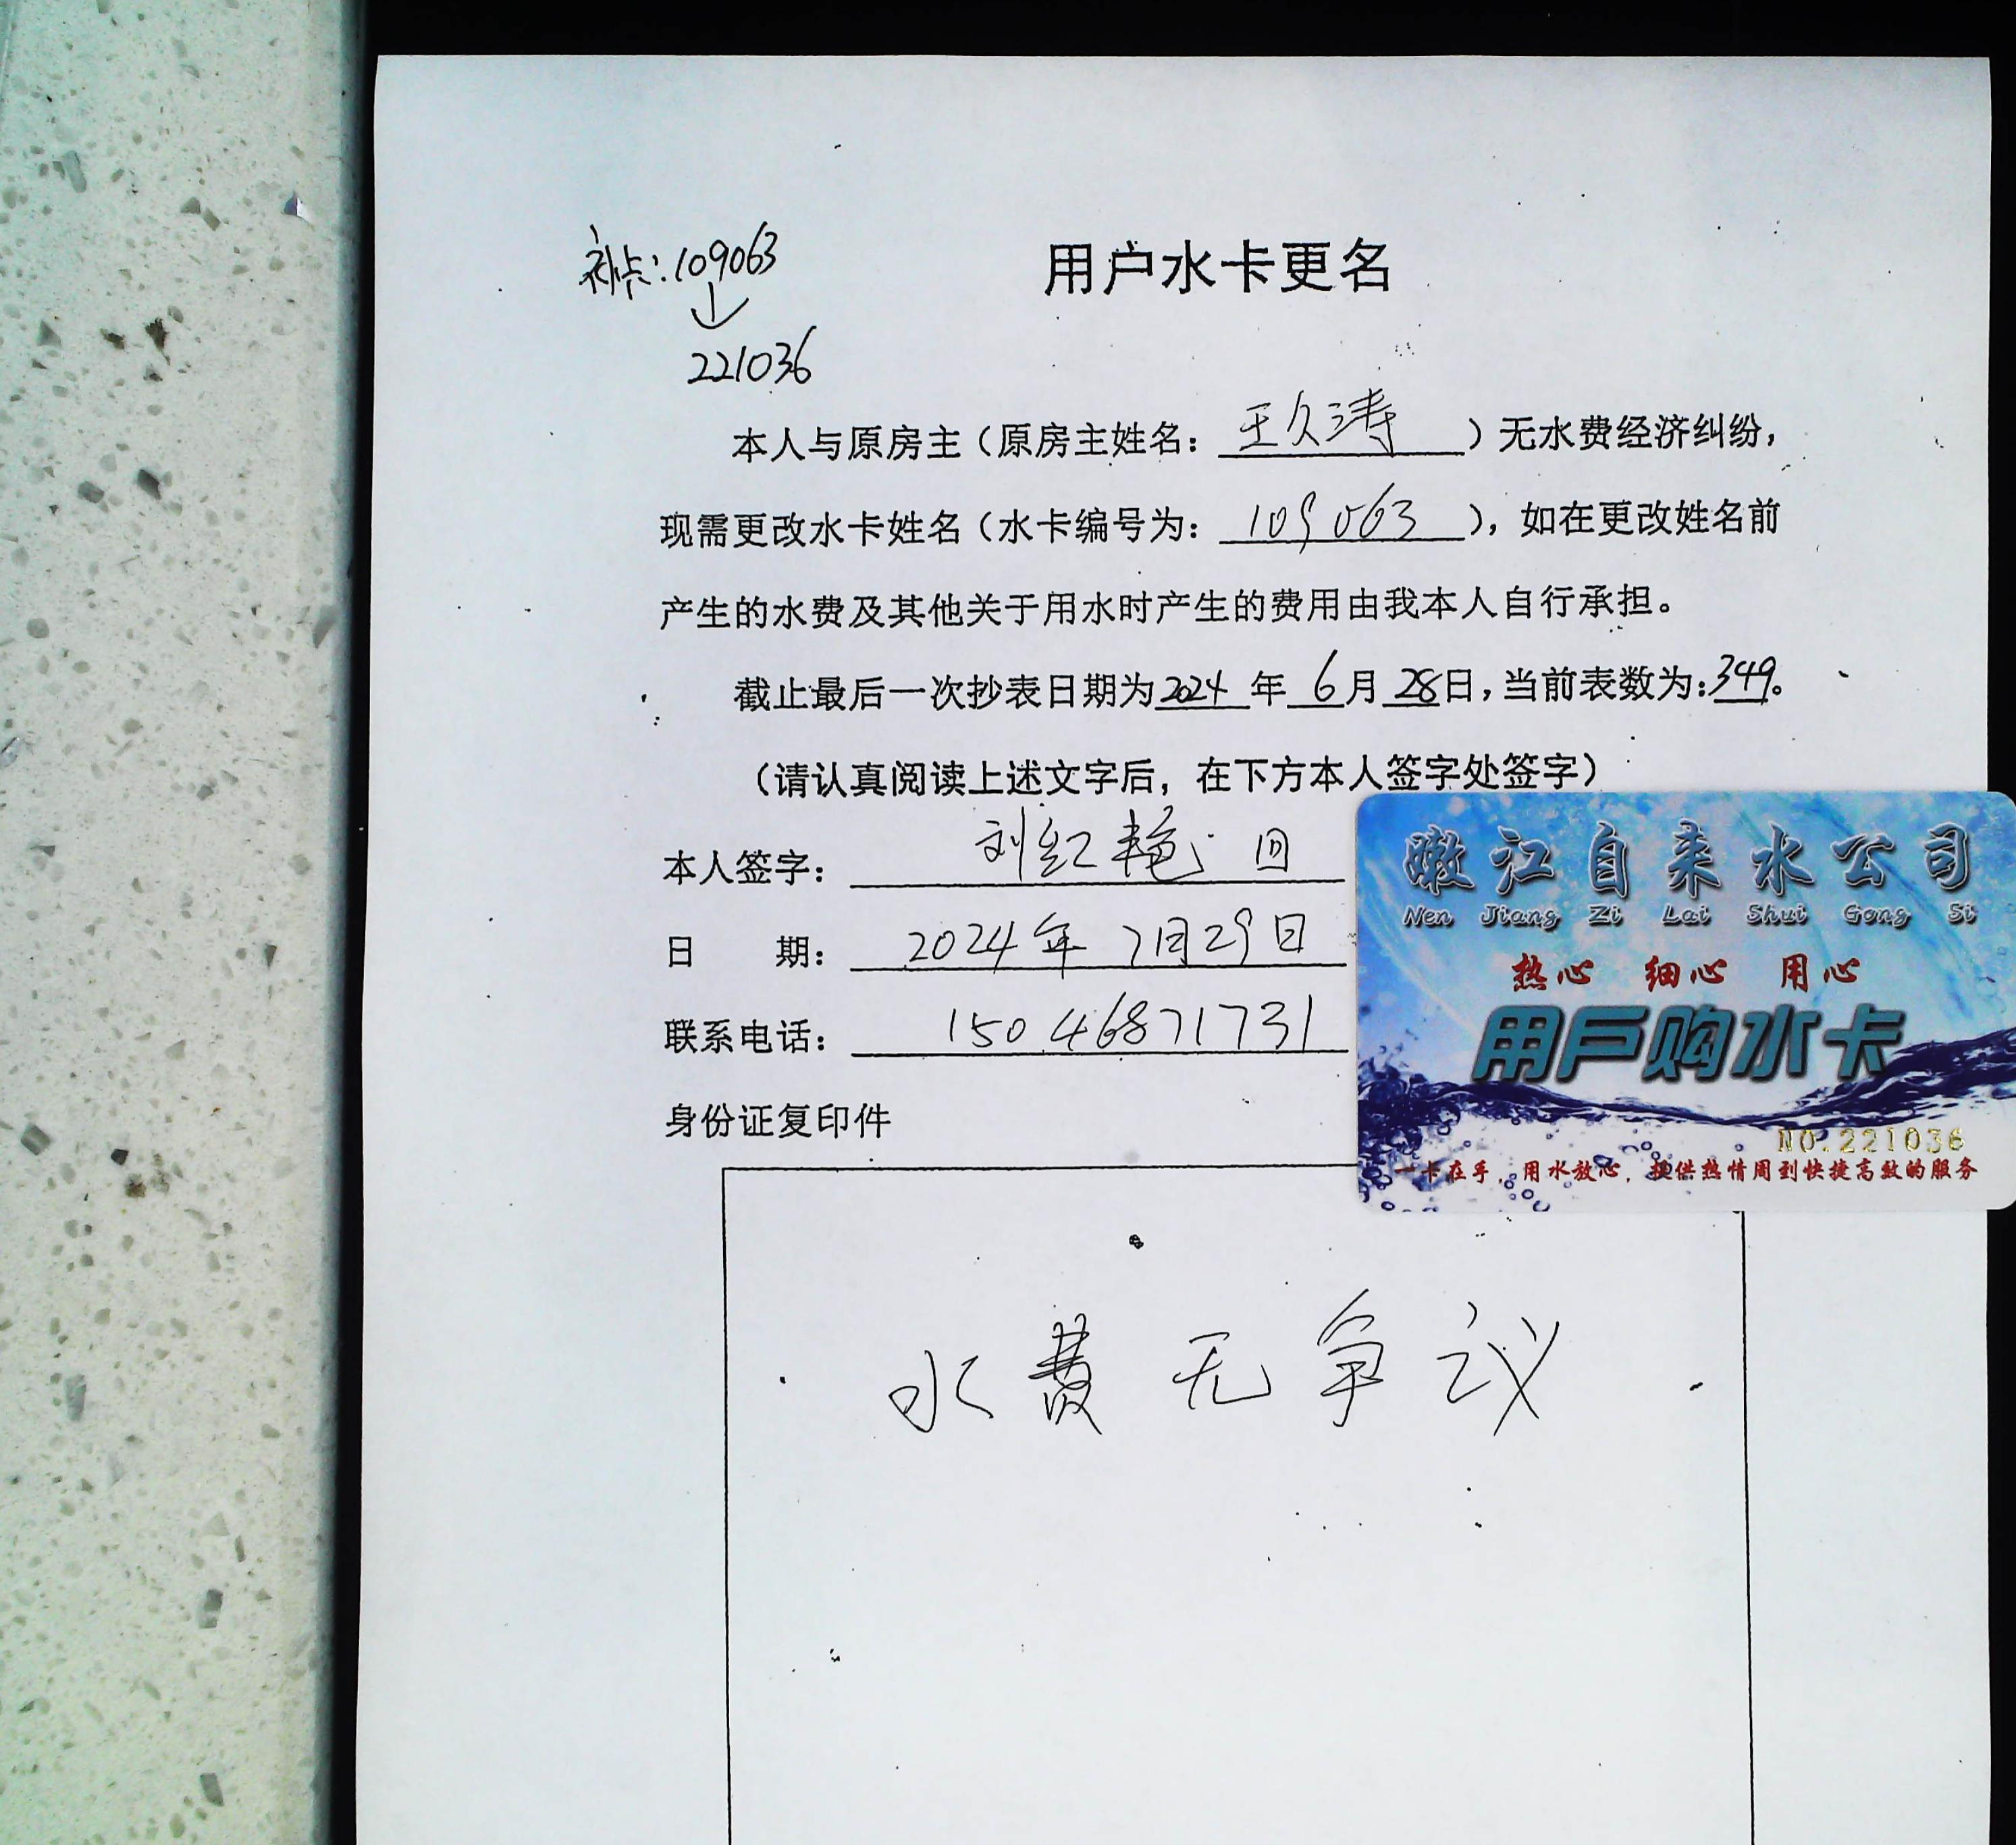 补卡:109063
↓
221036
用户水卡更名
本人与原房主（原房主姓名：王久涛）无水费经济纠纷，
现需更改水卡姓名（水卡编号为：109063），如在更改姓名前
产生的水费及其他关于用水时产生的费用由我本人自行承担。
截止最后一次抄表日期为2024年6月28日，当前表数为：349。
（请认真阅读上述文字后，在下方本人签字处签字）
本人签字：刘红艳 回
日 期：2024年7月29日
联系电话：15046871731
身份证复印件
水费无争议
嫩江自来水公司
Nen Jiang Zi Lai Shui Gong Si
热心 细心 用心
用户购水卡
NO.221036
一卡在手，用水放心，提供热情周到快捷高效的服务